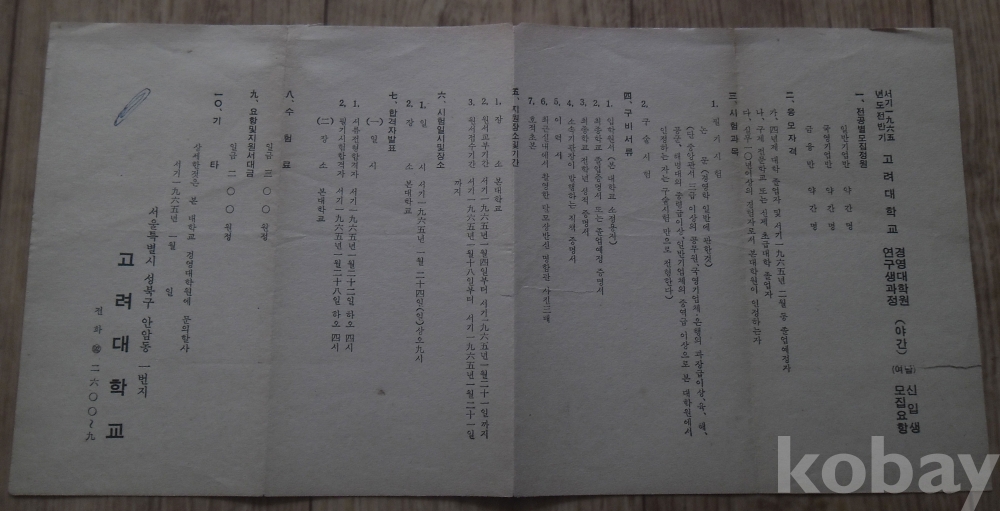 서기一九六五
년도전반기 고려대학교 경영대학원 연구생과정 (야간) (남여) 신입생 모집요항
一、전공별모집정원
일반기업반 약간명
국영기업반 약간명
금융반 약간명
二、응모자격
가、四년제 대학 졸업자 및 서기一九六五년二월 중 졸업예정자
나、구제 전문학교 또는 신제 초급대학 졸업자
다、실무一〇년이상의 경험자로서 본대학원이 인정하는자
三、시험과목
1、필기시험
논문(경영학 일반에 관한것)
(단 중앙관서 三급 이상의 공무원、국영기업체・은행의 과장급이상、육、해、
공군、해병대의 중령급이상、일반기업체의 중역급 이상으로 본 대학원에서
인정하는 자는 구술시험 만으로 전형한다)
2、구술시험
四、구비서류
1、입학원서(본 대학교 소정용지)
2、최종학교 졸업증명서 또는 졸업예정 증명서
3、최종학교 전학년 성적 증명서
4、소속기관장이 발행하는 직재 증명서
5、이력서
6、최근실내에서 촬영한 탈모상반신 명함판 사진三매
7、호적초본
五、지원장소및기간
1、장소 본대학교
2、원서교부기간 서기一九六五년一월四일부터 서기一九六五년一월二十一일 까지
3、원서접수기간 서기一九六五년一월十八일부터 서기一九六五년一월二十一일
까지
六、시험일시및장소
1、일시 서기一九六五년一월二十四일(일)상오九시
2、장소 본대학교
七、합격자발표
(一)일시
1、서류전형합격자 서기一九六五년一월二十二일 하오 四시
2、필기시험합격자 서기一九六五년一월二十八일 하오 四시
(二)장소 본대학교
八、수험료
일금 三〇〇원정
九、요항및지원서대금
일금 二〇〇원정
一〇、기타
상세한것은 본 대학교 경영대학원에 문의할사
서기一九六五년 一월 일
서울특별시 성북구 안암동 一번지
고려대학교
전화 二六〇〇~九
kobay